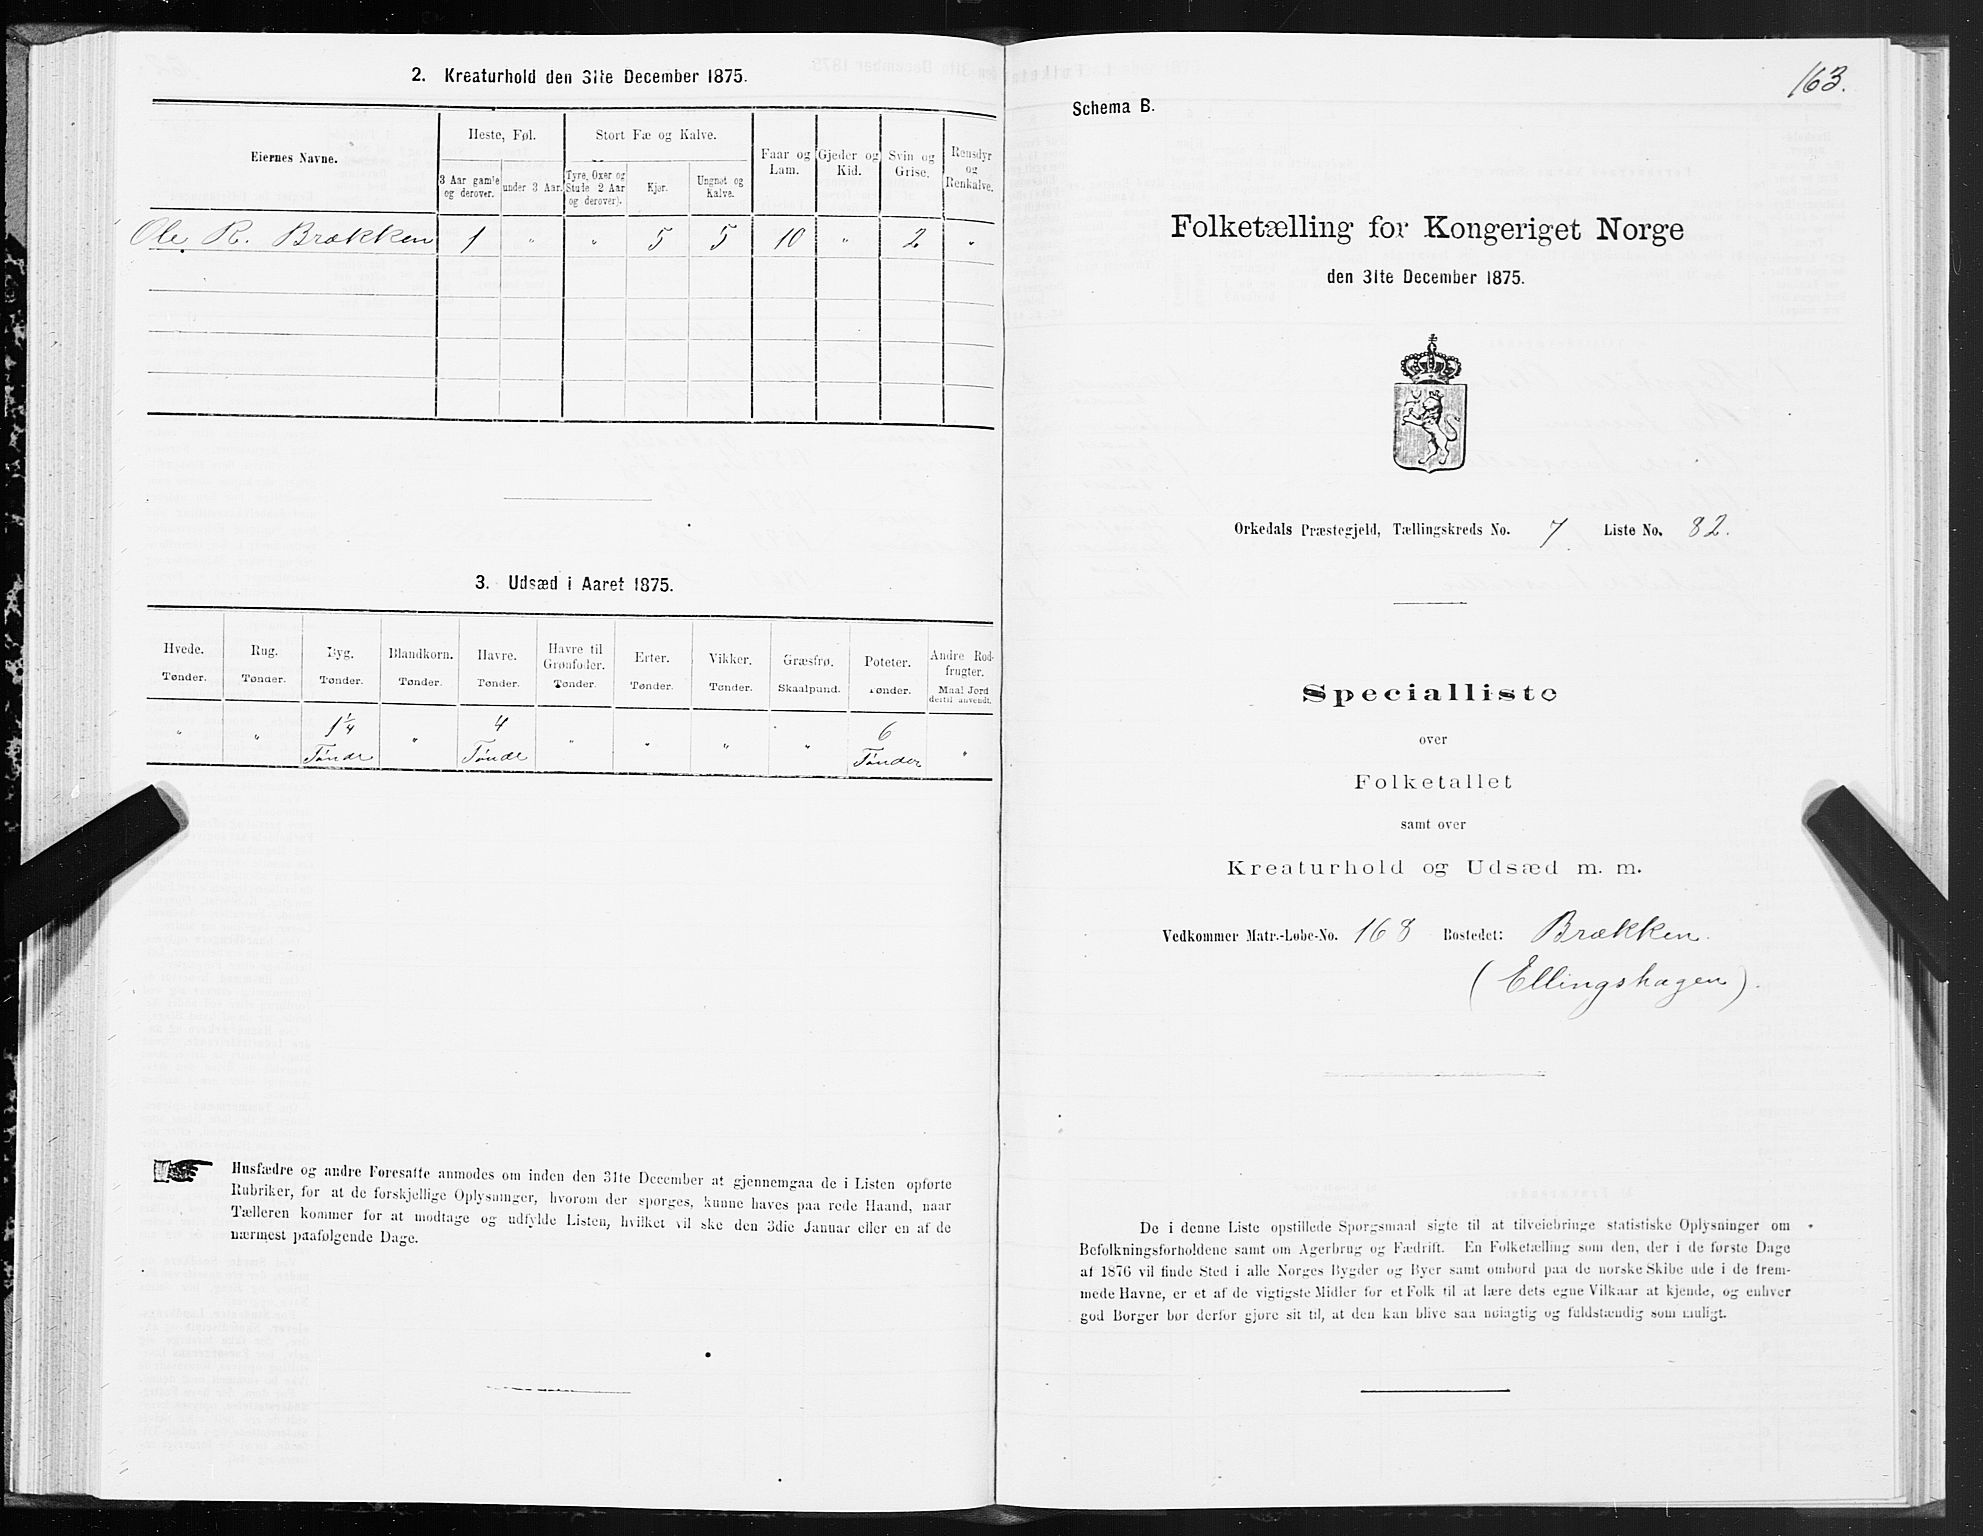 2. Kreaturhold den 31te December 1875.
Eiernes Navne.
Heste, Føl.
Stort Fæ og Kalve.
Faar og Lam.
Gjeder og Kid.
Svin og Grise.
Rensdyr og Renkalve.
3 Aar gamle og derover.
under 3 Aar.
Tyre, Oxer og Stude 2 Aar og derover).
Kjør.
Ungnøt og Kalve.
Ole R. Brækken 1 " " 5 5 10 " 2 "
3. Udsæd i Aaret 1875.
Hvede. Rug. Byg. Blandkorn. Havre. Havre til Grønfoder. Erter. Vikker. Græsfrø. Poteter. Andre Rodfrugter.
Tønder. Tønder. Tønder. Tønder. Tønder. Tønder. Tønder. Tønder. Skaalpund. Tønder. Maal Jord dertil anvendt.
" " 1 1/4 " 4 " " " " 6 "
Tønde Tønde Tønder
Husfædre og andre Foresatte anmodes om inden den 31te December at gjennemgaa de i Listen opførte
Rubriker, for at de forskjellige Oplysninger, hvorom der spørges, kunne haves paa rede Haand, naar
Tælleren kommer for at modtage og udfylde Listen, hvilket vil ske den 3die Januar eller en af de
nærmest paafølgende Dage.
163.
Schema B.
Folketælling for Kongeriget Norge
den 31te December 1875.
Orkedals Præstegjeld, Tællingskreds No. 7 Liste No. 82.
Specialliste
over
Folketallet
samt over
Kreaturhold og Udsæd m. m.
Vedkommer Matr.-Løbe-No. 168 Bostedet: Brækken.
(Ellingshagen).
De i denne Liste opstillede Spørgsmaal sigte til at tilveiebringe statistiske Oplysninger om
Befolkningsforholdene samt om Agerbrug og Fædrift. En Folketælling som den, der i de første Dage
af 1876 vil finde Sted i alle Norges Bygder og Byer samt ombord paa de norske Skibe ude i de frem-
mede Havne, er et af de vigtigste Midler for et Folk til at lære dets egne Vilkaar at kjende, og enhver
god Borger bør derfor gjøre sit til, at den kan blive saa nøiagtig og fuldstændig som muligt.